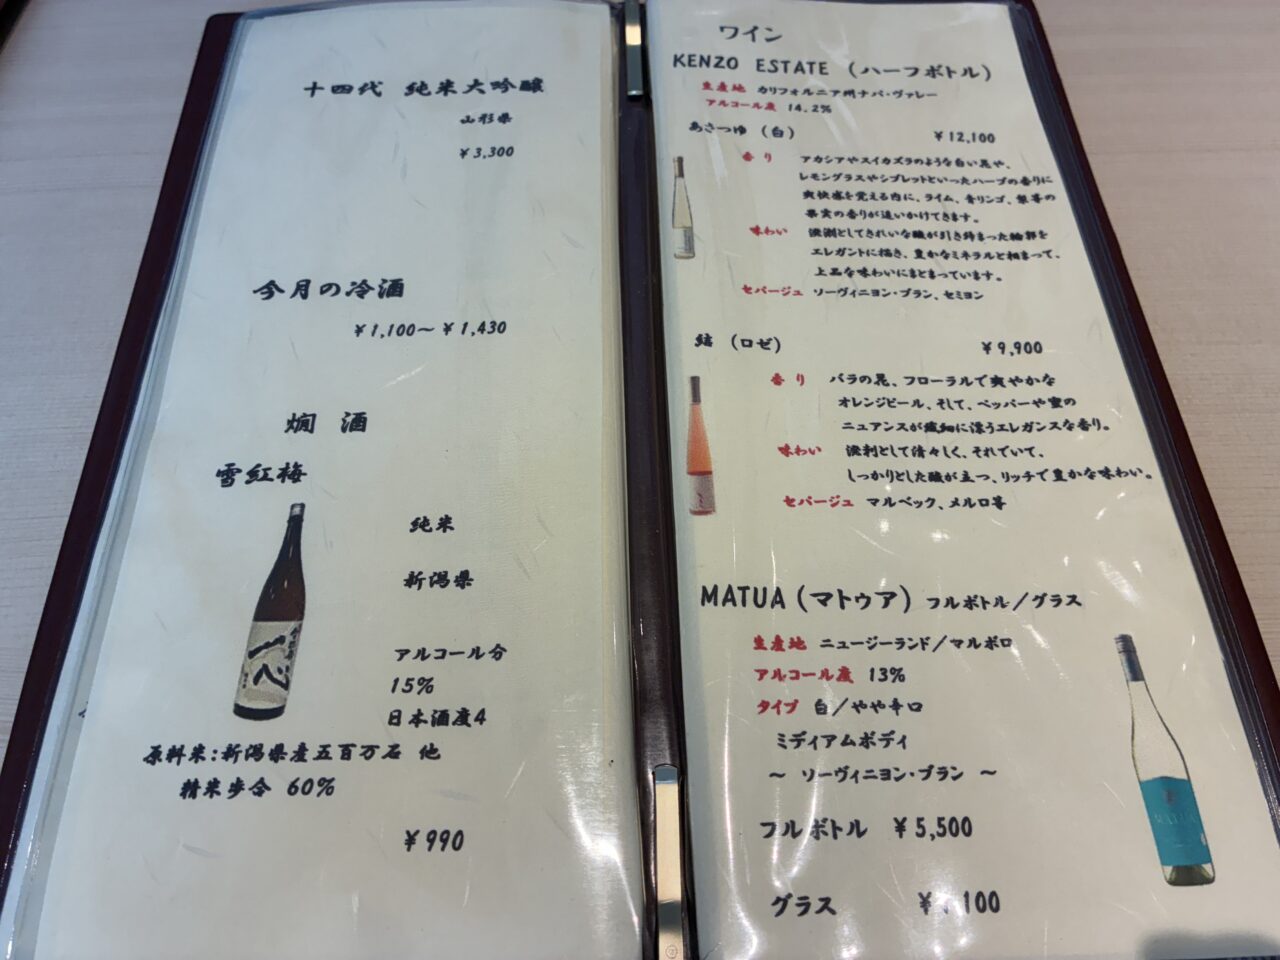 十四代 純米大吟醸
山形県
¥3,300
今月の冷酒
¥1,100～¥1,430
燗 酒
雪紅梅
純米
新潟県
アルコール分
15%
日本酒度4
原料米:新潟県産五百万石 他
精米歩合 60%
¥990
ワイン
KENZO ESTATE (ハーフボトル)
生産地 カリフォルニア州ナパ・ヴァレー
アルコール度 14.2%
あさつゆ (白) ¥12,100
香り アカシアやスイカズラのような白い花や、
レモングラスやシブレットといったハーブの香りに
爽快感を覚える内に、ライム、青リンゴ、梨等の
果実の香りが追いかけてきます。
味わい 溌溂としてきれいな酸が引き締まった輪郭を
エレガントに描き、豊かなミネラルと相まって、
上品な味わいにまとまっています。
セパージュ ソーヴィニヨン・ブラン、セミヨン
結 (ロゼ) ¥9,900
香り バラの花、フローラルで爽やかな
オレンジピール、そして、ペッパーや蜜の
ニュアンスが繊細に漂うエレガンスな香り。
味わい 溌剌として清々しく、それでいて、
しっかりとした酸が立つ、リッチで豊かな味わい。
セパージュ マルベック、メルロ等
MATUA (マトゥア) フルボトル/グラス
生産地 ニュージーランド/マルボロ
アルコール度 13%
タイプ 白/やや辛口
ミディアムボディ
～ ソーヴィニヨン・ブラン ～
フルボトル ¥5,500
グラス ¥1,100